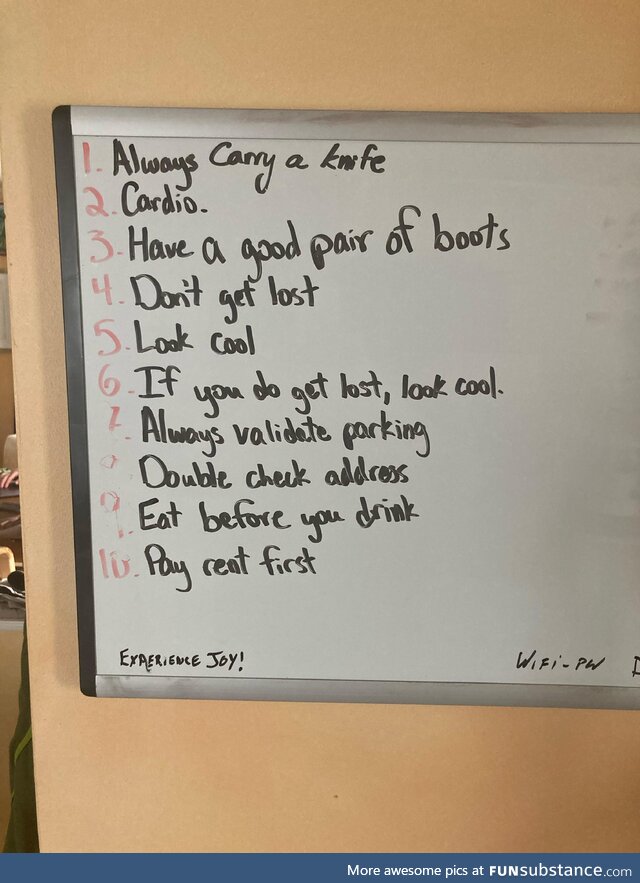 1. Always Carry a knife
2. Cardio.
3. Have a good pair of boots
4. Don't get lost
5. Look cool
6. If you do get lost, look cool.
7. Always validate parking
Double check address
9. Eat before you drink
10. Pay rent first
EXPERIENCE JOY!
WIFI-PW
More awesome pics at FUNsubstance.com